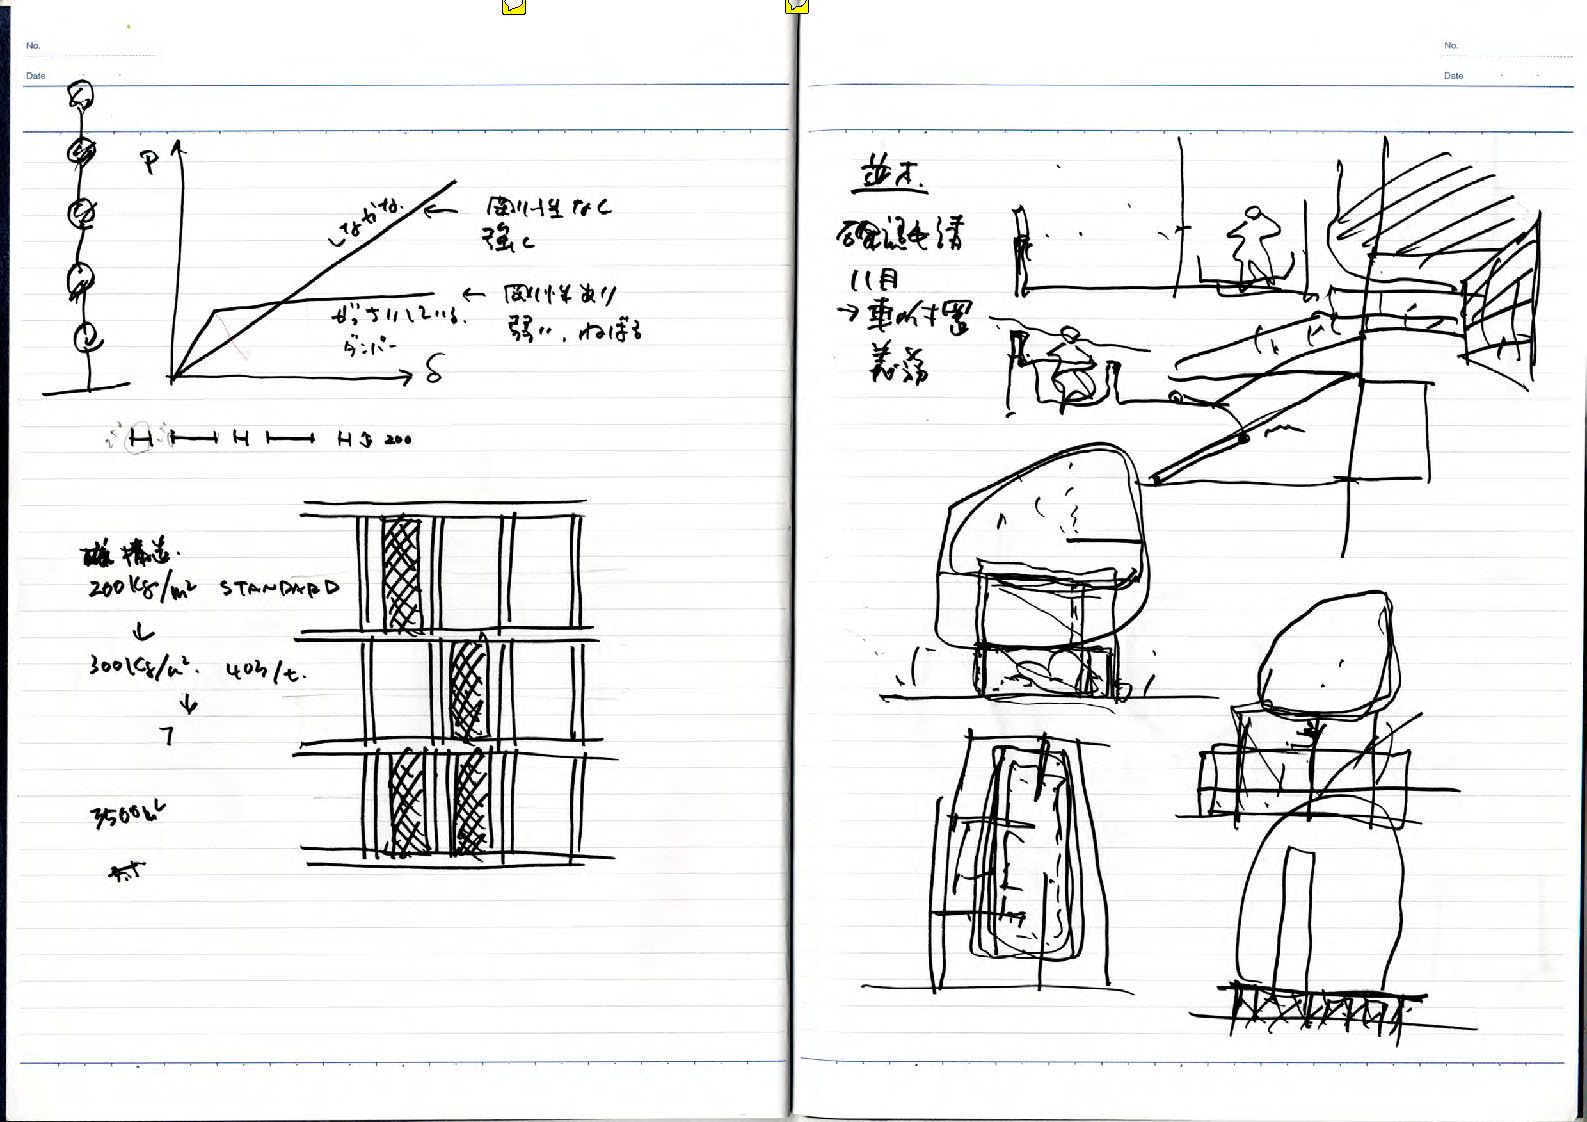 No.
Date
P
しなやかな
← 剛性なく
強く
← 剛性あり
弱い、ねばる
ダンパー
δ
H H H 200
構造
200Kg/m² STANDARD
↓
300Kg/m². 40万/t.
↓
7
3500m²
No.
Date
並木
確認申請
11月
→車 付置
義務